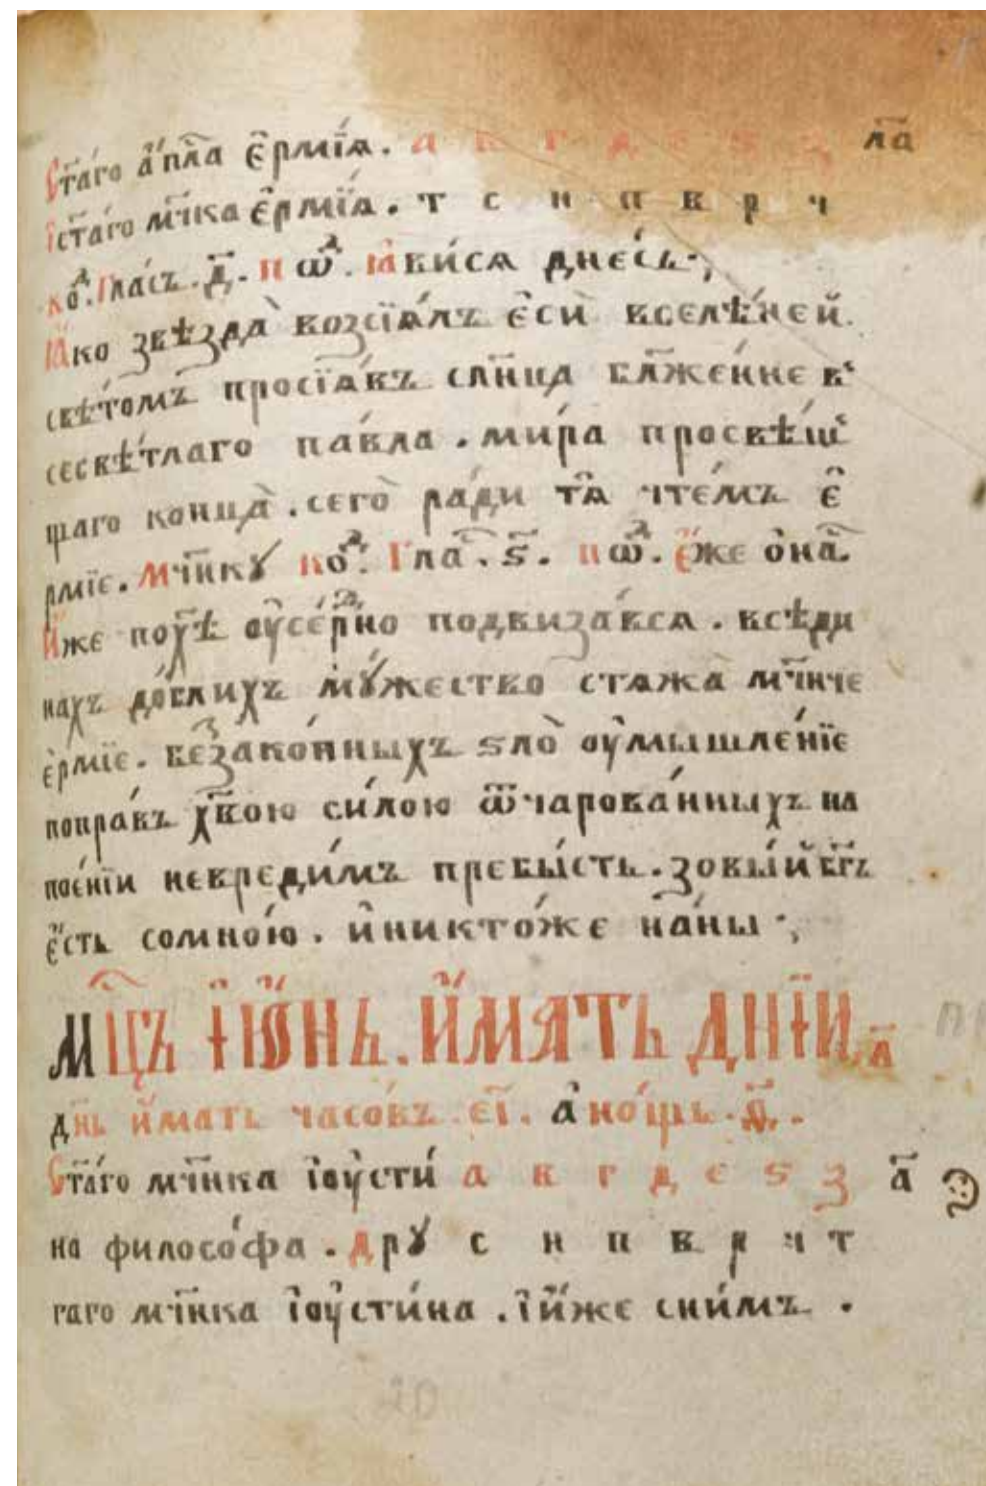 Ст҃а́го а҆пⷭ҇ла є҆рмі́ѧ. а в г д є ѕ з л҃а
і ст҃а́го мч҃нка є҆рмі́ѧ. т с н п в р ч
коⷣ. Гла́съ. д҃. п ѡⷣ. ꙗ҆ви́сѧ дне́сь ·,
Ꙗ҆́ко ѕвѣзда̀ возсїѧ́лъ є҆сѝ вселе́ннѣй.
свѣ́томъ просїѧ́въ сл҃нца бл҃же́нне в
сесвѣ́тлаго па́вла . ми́ра просвѣ́ще
щаго конца̀ . сего̀ ра́ди тѧ̀ чте́мъ є҆
рміе. Мч҃нкꙋ коⷣ. Гла҃. ѕ҃. п ѡⷣ. Є҆́же ѻ҆ на́.
И҆́же поꙋтѣ̀ ᲂу҆се́рⷣно подвиза́всѧ . всѣди
нахъ до́блихъ мꙋ́жество стѧжа̀ мч҃нче
є҆рміе. беззако́нныхъ ѕло̀ ᲂу҆мышле́нїе
попра́въ хв҃ою си́лою ѿчарова́нныхъ на
пое́нїи невреди́мъ пребы́сть . зовы́й бг҃ъ
є҆́сть сомно́ю . и҆никто́же на́ны ·,
Мц҃ъ і҆ю́нь . и҆́мать дні́и . л҃
дн҃ь и҆́мать часо́въ . є҃і . а҆ но́щь . ѳ҃.
Ст҃а́го мч҃нка і҆ᲂу҆сти́ а в г д є ѕ з а҃
на филосо́фа . дрꙋ с н п в р ч т
гаго мч҃нка і҆ᲂу҆сти́на . і҆ и҆́же сни́мъ .
20